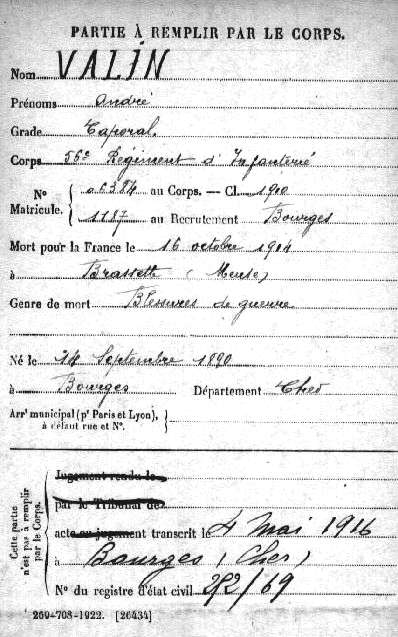 PARTIE À REMPLIR PAR LE CORPS.
Nom VALIN
Prénoms André
Grade Caporal.
Corps 56e Régiment d'Infanterie
No 06324 au Corps. — Cl. 1910
Matricule. 1187 au Recrutement Bourges
Mort pour la France le 16 octobre 1914
à (Meuse)
Genre de mort Blessures de guerre
Né le 14 Septembre 1890
à Bourges Département Cher
Arrt municipal (pr Paris et Lyon),
à défaut rue et No.
Cette partie
n'est pas à remplir
par le Corps.
Jugement rendu le
par le Tribunal de
acte ou jugement transcrit le 4 Mai 1916
à Bourges (Cher)
No du registre d'état civil 292/69
269-708-1922. [26434]